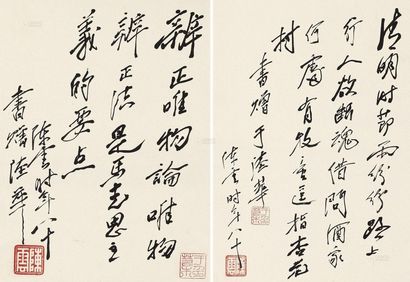 清明时节雨纷纷路上
行人欲断魂借问酒家
何处有牧童遥指杏花
村
书赠于若华
陈云时年八十
辩正唯物論唯物
辩正法是馬克思主
義的要点
书赠
陈云时年八十